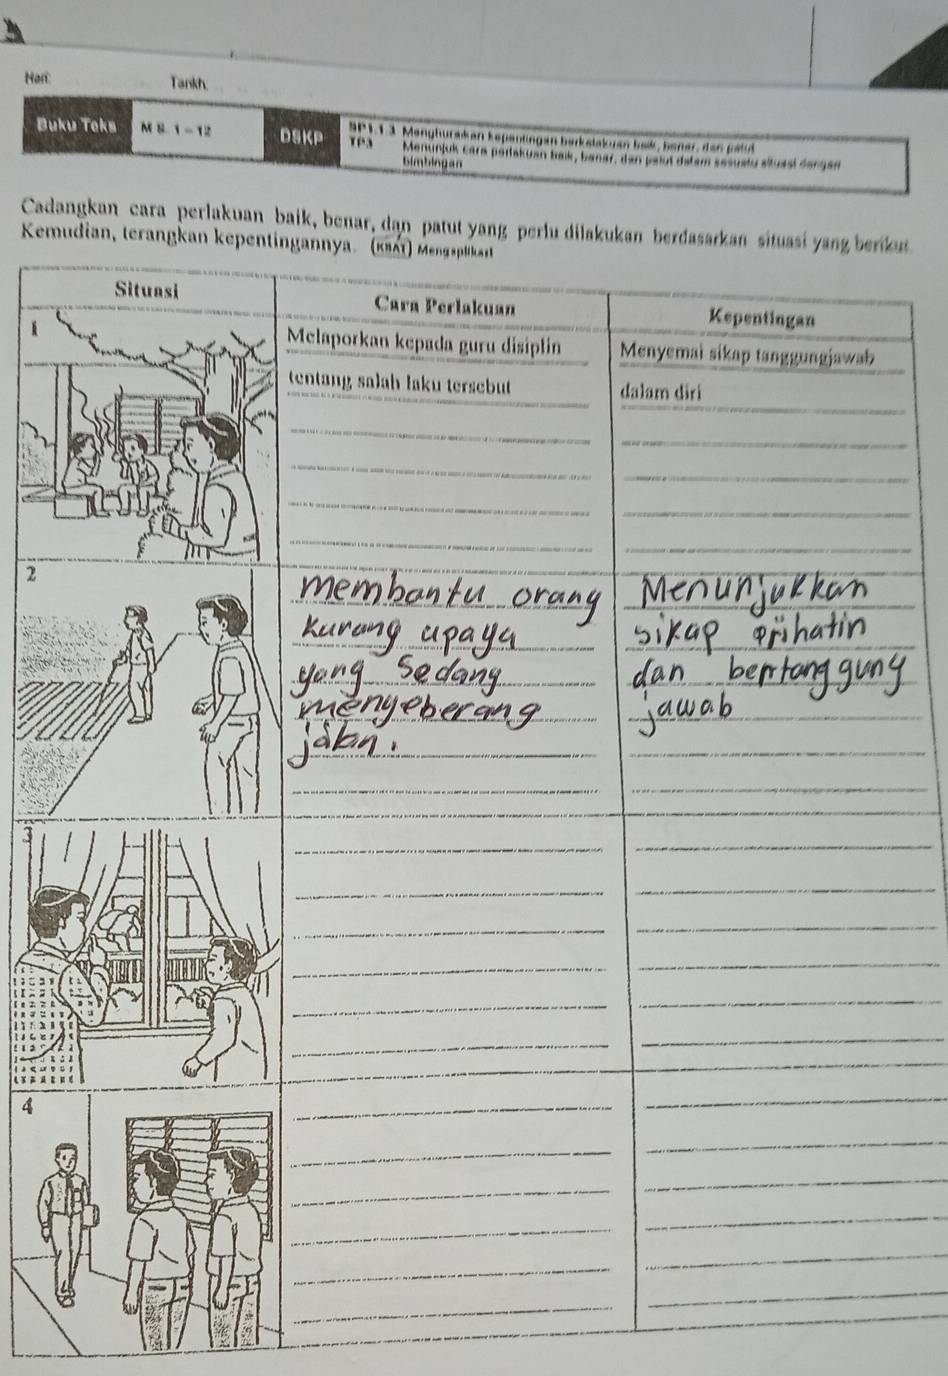 Hari:
Tarikh:
Buku Teks
M.S. 1 – 12
DSKP
SP1.1.3 Menghuraikan kepentingan berkelakuan baik, benar, dan patut
TP3 Menunjuk cara perlakuan baik, benar, dan patut dalam sesuatu situasi dengan
bimbingan
Cadangkan cara perlakuan baik, benar, dan patut yang perlu dilakukan berdasarkan situasi yang berikut.
Kemudian, terangkan kepentingannya. (KBAT) Mengaplikasi
Situasi
Cara Perlakuan
Kepentingan
1
Melaporkan kepada guru disiplin
tentang salah laku tersebut
Menyemai sikap tanggungjawab
dalam diri
2
membantu orang
kurang upaya
yang sedang
menyeberang
jalan.
Menunjukkan
sikap prihatin
dan bertanggung
jawab
3
4